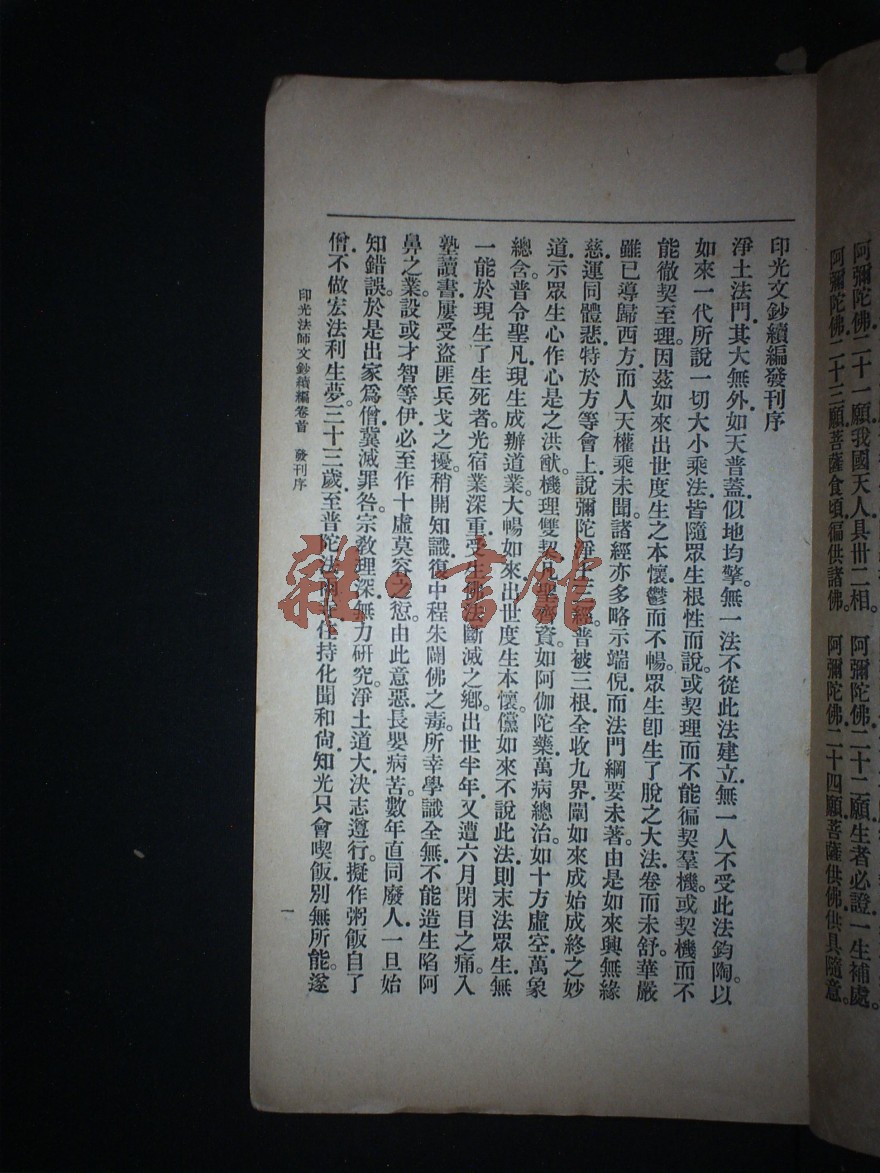 阿彌陀佛二十一願我國天人具卅二相。阿彌陀佛二十二願生者必證一生補處。
阿彌陀佛二十三願菩薩食頃徧供諸佛。阿彌陀佛二十四願菩薩供佛供具隨意。
印光文鈔續編發刊序
淨土法門．其大無外．如天普蓋．似地均擎。無一法不從此法建立．無一人不受此法鈞陶。以
如來一代所說一切大小乘法．皆隨眾生根性而說。或契理而不能徧契羣機。或契機而不
能徹契至理。因茲如來出世度生之本懷．鬱而不暢。眾生卽生了脫之大法．卷而未舒。華嚴
雖已導歸西方．而人天權乘未聞。諸經亦多略示端倪．而法門綱要未著。由是如來興無緣
慈．運同體悲．特於方等會上．說彌陀淨土三經．普被三根．全收九界．闡如來成始成終之妙
道．示眾生心作心是之洪猷。機理雙契．凡聖齊資。如阿伽陀藥．萬病總治。如十方虛空．萬象
總含。普令聖凡．現生成辦道業．大暢如來出世度生本懷。儻如來不說此法．則末法眾生．無
一能於現生了生死者。光宿業深重．受生佛法斷滅之鄉。出世半年．又遭六月閉目之痛。入
塾讀書．屢受盜匪兵戈之擾。稍開知識．復中程朱闢佛之毒。所幸學識全無．不能造生陷阿
鼻之業。設或才智等伊．必至作十虛莫容之愆。由此意惡．長嬰病苦。數年直同廢人．一旦始
知錯誤。於是出家爲僧．冀滅罪咎。宗教理深．無力研究。淨土道大．決志遵行。擬作粥飯自了
僧．不做宏法利生夢。三十三歲．至普陀法雨寺住持化聞和尙．知光只會喫飯．別無所能。遂
印光法師文鈔續編卷首　發刊序
一
雜·書館